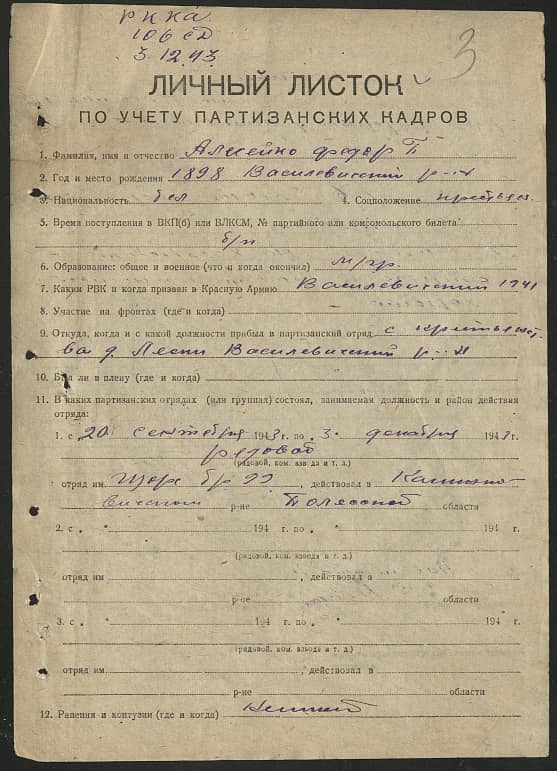 РККА
106 сд
3.12.43
3
ЛИЧНЫЙ ЛИСТОК
ПО УЧЕТУ ПАРТИЗАНСКИХ КАДРОВ
1. Фамилия, имя и отчество Алисейко Федор П
2. Год и место рождения 1898 Василевичский р-н
3. Национальность бел 4. Соцположение крестьян.
5. Время поступления в ВКП(б) или ВЛКСМ, № партийного или комсомольского билета
б/п
6. Образование: общее и военное (что и когда окончил) м/гр.
7. Каким РВК и когда призван в Красную Армию Василевичский 1941
8. Участие на фронтах (где и когда)
9. Откуда, когда и с какой должности прибыл в партизанский отряд с крестьянст
ва д. Василевичский р-н
10. Был ли в плену (где и когда)
11. В каких партизанских отрядах (или группах) состоял, занимаемая должность и район действия
отряда:
1. с „20 сентября 1943 г. по „3" декабря 1943 г.
рядовой
(рядовой, ком. взвода и т. д.)
отряд им. Щорс бр 99, действовал в Калинко-
вичском р-не Полесской области
2. с „ " 194 г. по „ " 194 г.
(рядовой, ком. взвода и т. д.)
отряд им , действовал в
р-не области
3. с „ " 194 г. по „ " 194 г.
(рядовой, ком. взвода и т. д.)
отряд им. , действовал в
р-не области
12. Ранения и контузии (где и когда)